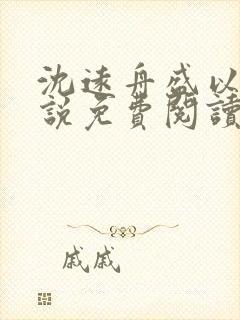 沈遠舟盛以
說免費閱讀
戚戚